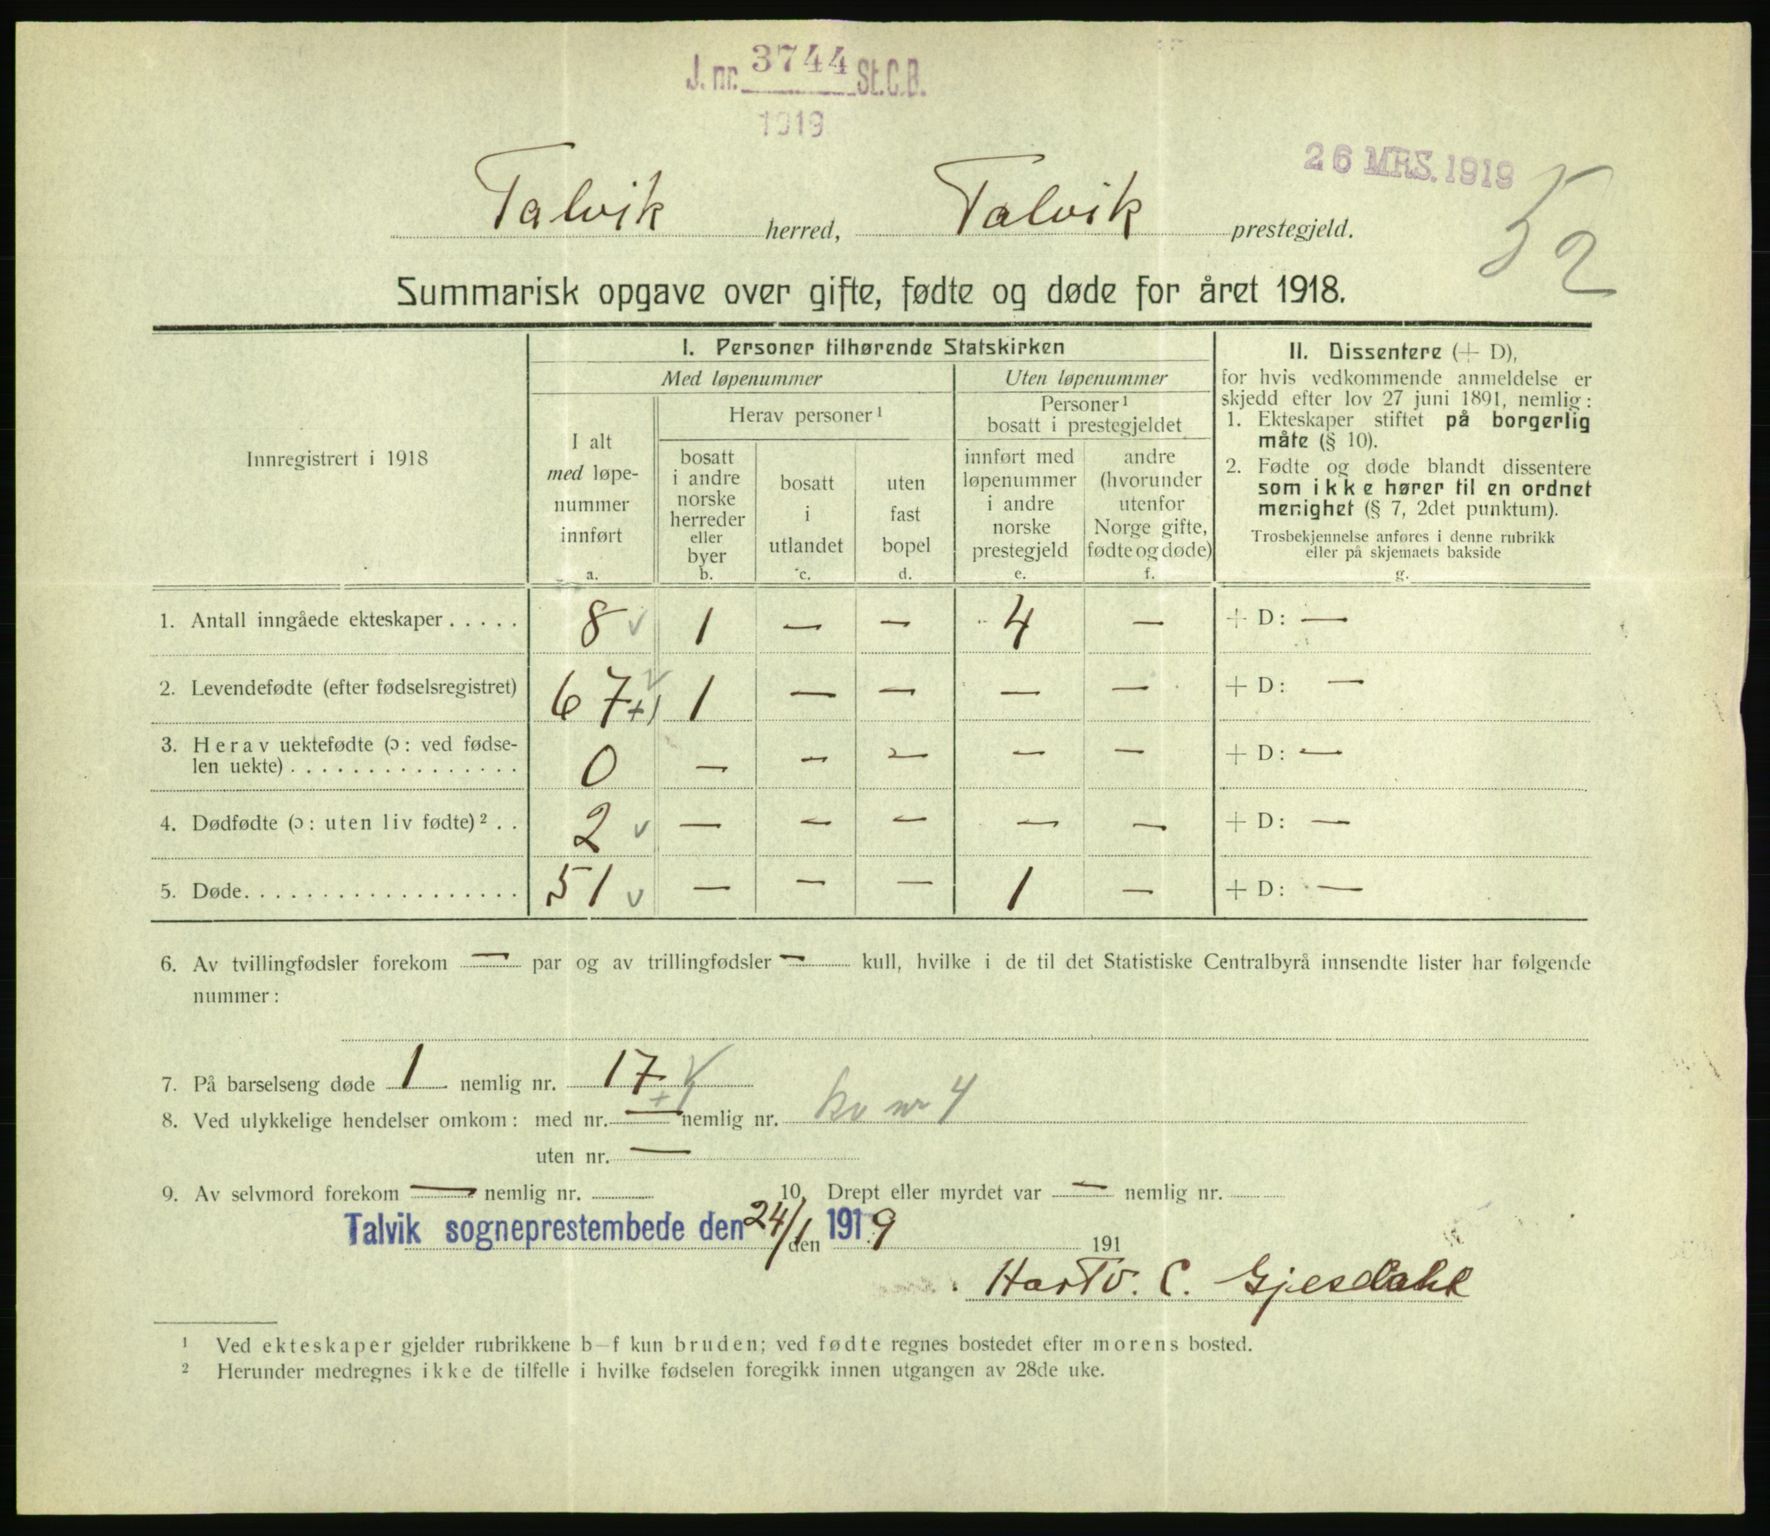 J. nr. 3744 St.C.B.
1919
26 MRS. 1919
Talvik herred, Talvik prestegjeld.
52
Summarisk opgave over gifte, fødte og døde for året 1918.
Innregistrert i 1918
I. Personer tilhørende Statskirken
Med løpenummer
Uten løpenummer
I alt
med løpe-
nummer
innført
a.
Herav personer ¹
bosatt
i andre
norske
herreder
eller
byer
b.
bosatt
i
utlandet
c.
uten
fast
bopel
d.
Personer ¹
bosatt i prestegjeldet
innført med
løpenummer
i andre
norske
prestegjeld
e.
andre
(hvorunder
utenfor
Norge gifte,
fødte og døde)
f.
II. Dissentere (+ D),
for hvis vedkommende anmeldelse er
skjedd efter lov 27 juni 1891, nemlig:
1. Ekteskaper stiftet på borgerlig
måte (§ 10).
2. Fødte og døde blandt dissentere
som ikke hører til en ordnet
menighet (§ 7, 2det punktum).
Trosbekjennelse anføres i denne rubrikk
eller på skjemaets bakside
g.
1. Antall inngåede ekteskaper . . . . . 8 v 1 — — 4 — + D: —
2. Levendefødte (efter fødselsregistret) 67 +1 v 1 — — — — + D: —
3. Herav uektefødte (ɔ: ved fødse-
len uekte) . . . . . . . . . . . . . . . 0 — — — — — + D: —
4. Dødfødte (ɔ: uten liv fødte) ² . . 2 v — — — — — + D: —
5. Døde. . . . . . . . . . . . . . . . . . 51 v — — — 1 — + D: —
6. Av tvillingfødsler forekom — par og av trillingfødsler — kull, hvilke i de til det Statistiske Centralbyrå innsendte lister har følgende
nummer:
7. På barselseng døde 1 nemlig nr. 17 v
+1
8. Ved ulykkelige hendelser omkom: med nr. — nemlig nr. kv nr 4
uten nr. —
9. Av selvmord forekom — nemlig nr. 10. Drept eller myrdet var — nemlig nr.
Talvik sogneprestembede den 24/1 1919
den 191
Hartv. C. Gjesdahl
¹ Ved ekteskaper gjelder rubrikkene b—f kun bruden; ved fødte regnes bostedet efter morens bosted.
² Herunder medregnes ikke de tilfelle i hvilke fødselen foregikk innen utgangen av 28de uke.